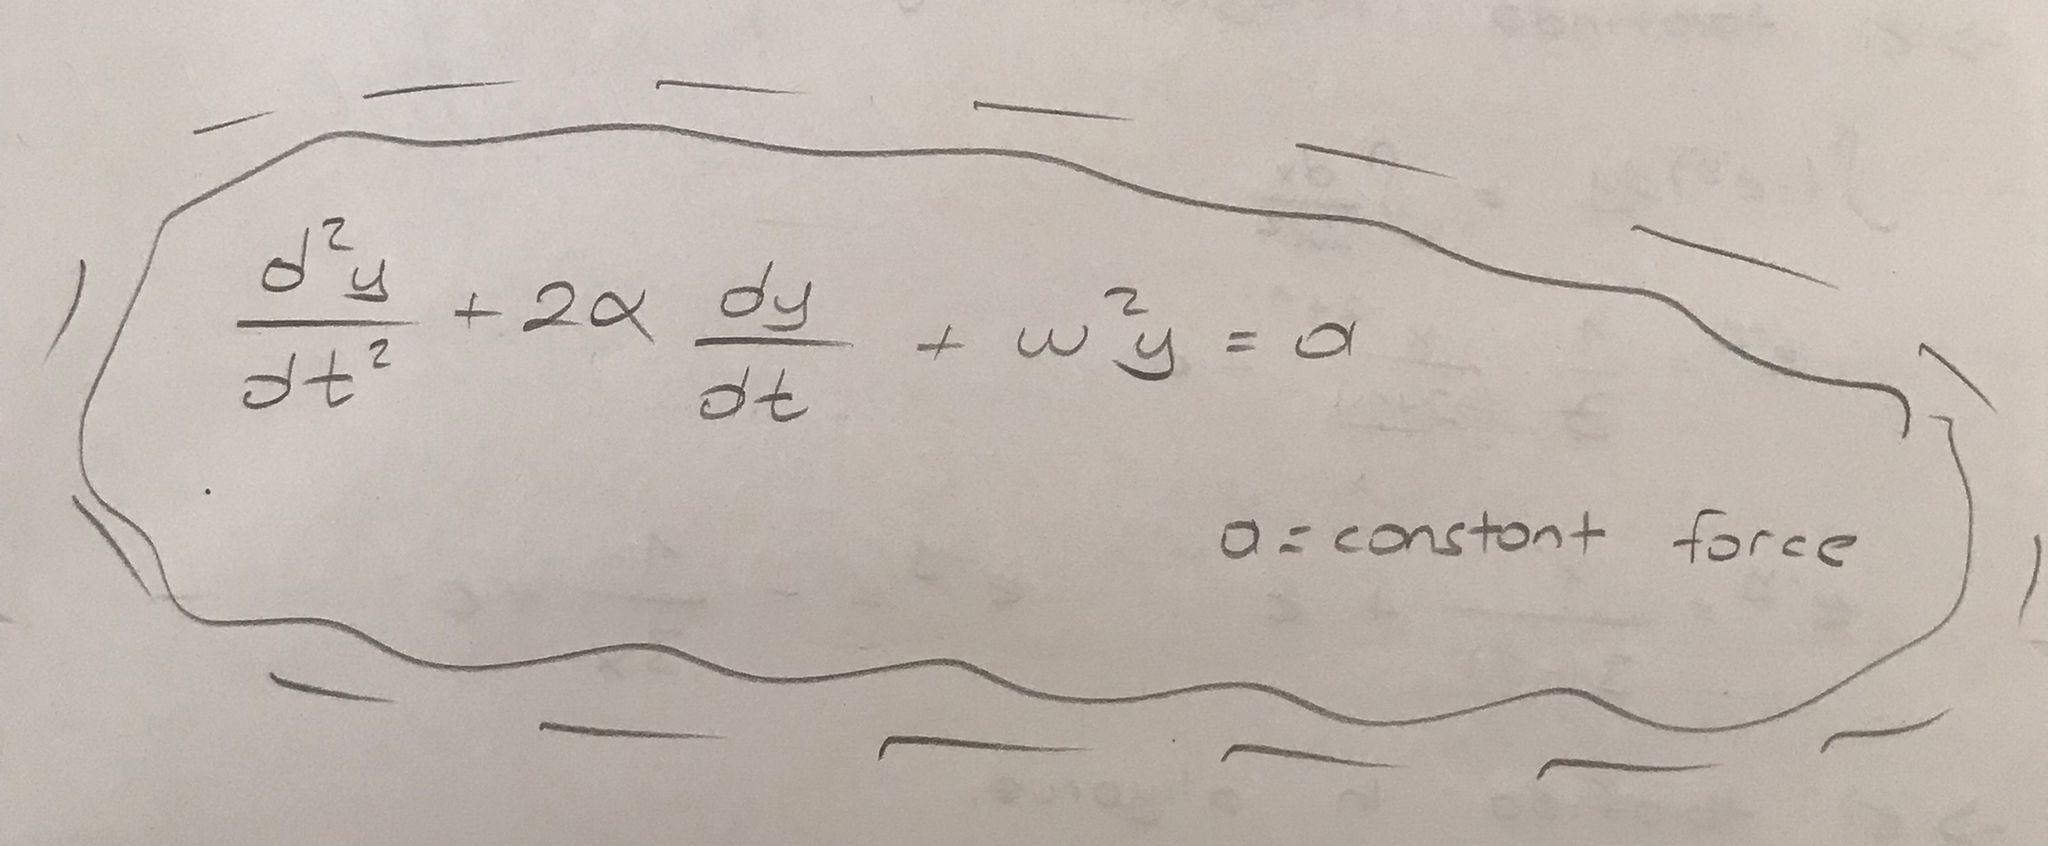 d²y/dt² + 2α dy/dt + ω²y = a
a = constant force